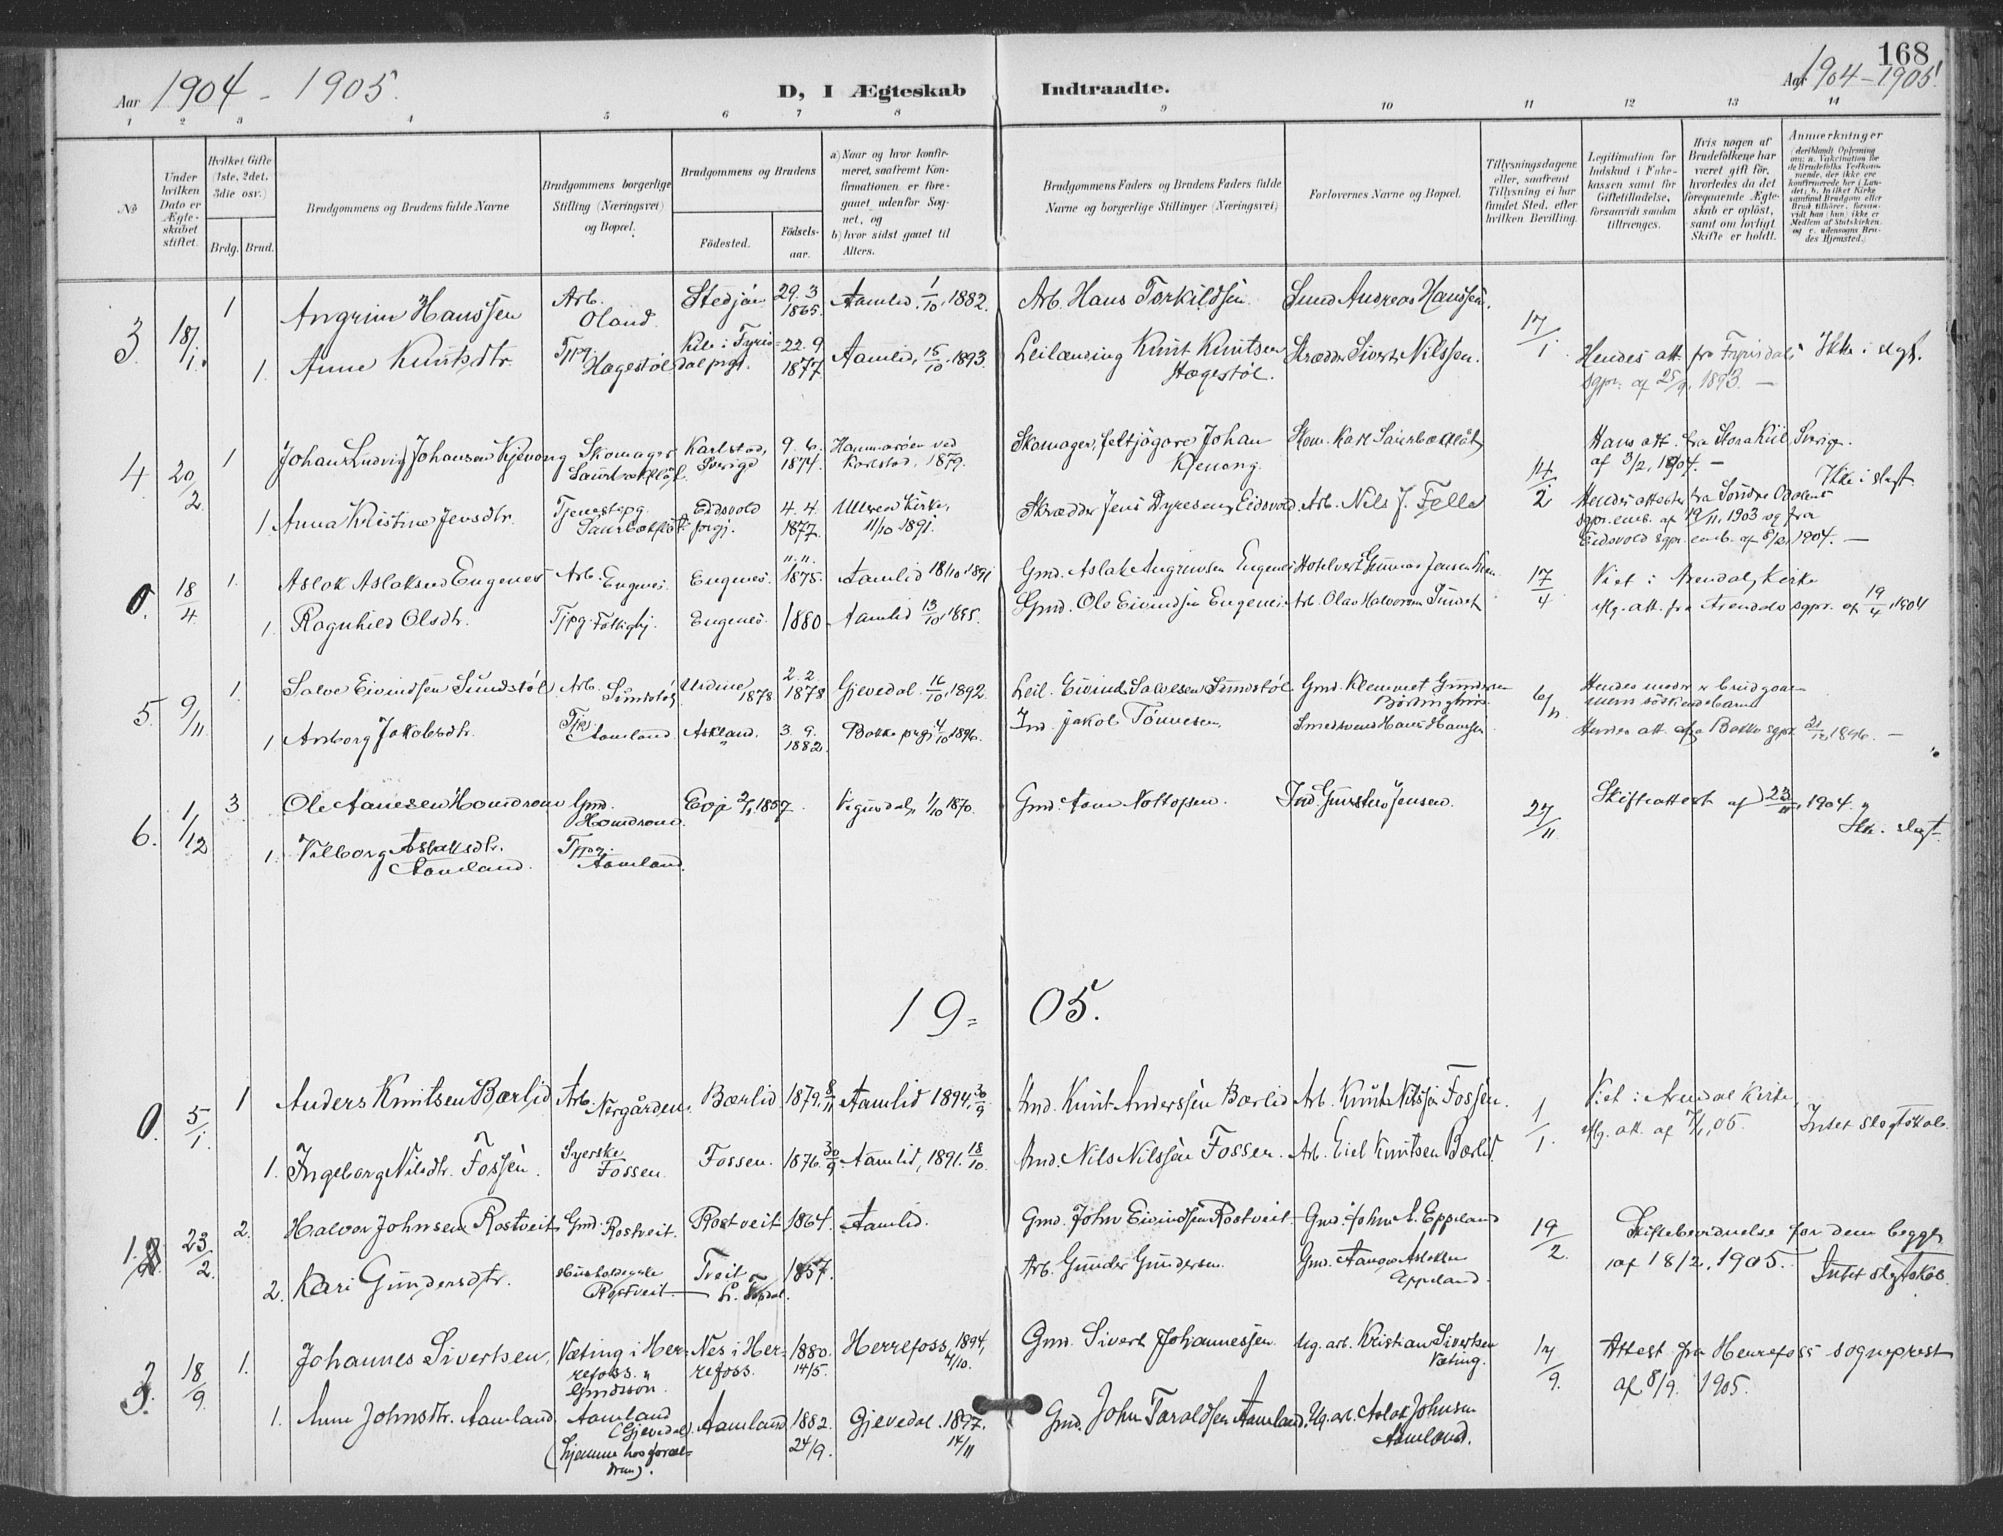 168
Aar 1904 - 1905.
D, I Ægteskab Indtraadte.
Aar 1904-1905.
1 2 3 4 5 6 7 8 9 10 11 12 13 14
No
Under hvilken Dato er Ægteskabet stiftet.
Hvilket Gifte (1ste, 2det, 3die osv.)
Brdg. Brud.
Brudgommens og Brudens fulde Navne
Brudgommens borgerlige Stilling (Næringsvei) og Bopæl.
Brudgommens og Brudens
Födested. Födsels-aar.
a) Naar og hvor konfirmeret, saafremt Konfirmationen er foregaaet udenfor Sognet, og
b) hvor sidst gaaet til Alters.
Brudgommens Faders og Brudens Faders fulde Navne og borgerlige Stillinger (Næringsvei)
Forlovernes Navne og Bopæl.
Tillysningsdagene eller, saafremt Tillysning ei har fundet Sted, efter hvilken Bevilling.
Legitimation for Indskud i Enkekassen samt for Giftetilladelse, forsaavidt saadan tiltrænges.
Hvis nogen af Brudefolkene har været gift för, hvorledes da det foregaaende Ægteskab er oplöst, samt om lovligt Skifte er holdt.
Anmærkninger
3 18/1 1 Angrim Hanssen Arb. Oland Stedjan 29.3 1865 Aamlid 1/10 1882. Arb. Hans Torkildsen Smed Andreas Hanssen. 17/1
1. Anne Knutsdtr. Tjpg. Hægestöl Kile i Fyrisdal prgj. 22.9 1877 Aamlid, 15/10 1893. Leilænding Knut Knutsen Hægestöl. Skrædder Sivert Nilssen. Hendes att. fra Fyrisdals sgpr. af 25/9 1893. — Ikke i slegt.
4 20/2 1 Johan Ludvig Johansen Skomager Karlstad, Sverige 9.6. 1874. Hammaröen ved Karlstad, 1879. Skomager, feltjägare Johan Kjenong. Skom. Karl 14/2 Hans att. fra Stora Kiil, Sverige. af 3/2, 1904. —
Ikke i slegt
1. Anna Kristine Jensdtr. Tjenestepg. Eidsvold prgj. 4.4. 1877. Ullren Kirke, 11/10 1891. Skrædder Jens Dyresen, Eidsvold. Arb. Nils J. Felle Hendes attester fra Söndre Odalens sgpr. emb. af 19/11, 1903 og fra Eidsvold sgpr. emb. af 8/2, 1904. —
0. 18/4 1. Aslak Aslaksen Eugenes Arb. Eugenes. Eugenes. 11.11. 1875. Aamlid 18/10 1891 Gmd. Aslak Angrimsen Eugenes Hotelvert Gunnar Jensen 17/4 Viet i Arendals Kirke
1. Ragnhild Olsdtr. Tjpg. Eugenes. 1880. Aamlid 13/10, 1895. Gmd. Ole Eivindsen Eugenes Arb. Olav Halvorsen flg. att. fra Arendals sgpr. af 19/4 1904
5. 9/11 1. Salve Eivindsen Sundstöl Arb. Sundstöl 1878 2.2. 1878 Gjevedal. 16/10, 1892. Leil. Eivind Salvesen Sundstöl Gmd. Klemmet Gundersen 6/11 Hendes moder & brudgommens söskendebarn
1 Anborg Jakobsdtr. Tjpg. Aamland Askland. 3.9. 1882. Bakke prgj 4/10 1896. Ind. Jakob Tönnesen. Smedsvend Hans Hanssen Hendes att. fra Bakke sgpr. 1896. —
6. 1/12 3 Ole Aanesen Homdrom Gmd. Homdrom. Evje 2/1 1857. Vegusdal, 1/10 1870. Gmd. Aane Nottofsen. Ind. Jensen. 27/11 Skifteattest af 23/11, 1904. Ikke i slegt.
1. Valborg Aslaksdtr. Aamland. Tjpg. Aamland.
19 = 05.
0. 5/1. 1 Anders Knutsen Bærlid Arb. Nergården. Bærlid 1879. 8/11 Aamlid 1894. 30/9 Gmd. Knut Anderssen Bærlid Arb. Knut Nilssen Fossen. 1/1. Viet i Arendal Kirke, flg. att. af 7/1, 05. Intet slegtskab.
1. Ingeborg Nilsdtr. Fossen. Syerske Fossen. Fossen. 1876. 30/9 Aamlid, 1891. 18/10. Gmd. Nils Nilssen Fossen. Arb. Eiel Knutsen Bærlid.
1. 23/2. 2. Halvor Johnsen Rostveit Gmd. Rostveit. Rostveit 1864. Aamlid. Gmd. John Eivindsen Rostveit Gmd. John E. Eppeland 19/2. Skiftebevidnelse for dem begge, af 18/2, 1905. Intet slegtskab.
2. Kari Gundersdtr. Husholderske Rostveit Tveit 1857. Arb. Gunder Gundersen. Gmd. Aanon Aslaksen Eppeland.
2. 18/9 1. Johannes Sivertsen, Væting i Herrefoss. Gmdssön. Nes i Herrefoss. 1880. 14/5. Herrefoss, 1894, 4/10. Gmd. Sivert Johannessen. Ug. arb. Kristian Sivertsen Væting. 17/9. Attest fra Herrefoss sogneprest af 8/9. 1905.
1. Anne Johnsdtr. Aamland. Aamland (Gjevedal) (hjemme hos forældrene). Aamland. 1882. 24/9. Gjevedal. 1897. 14/11 Gmd. John Taraldsen Aamland. Ug. arb. Aslak Johnsen Aamland.